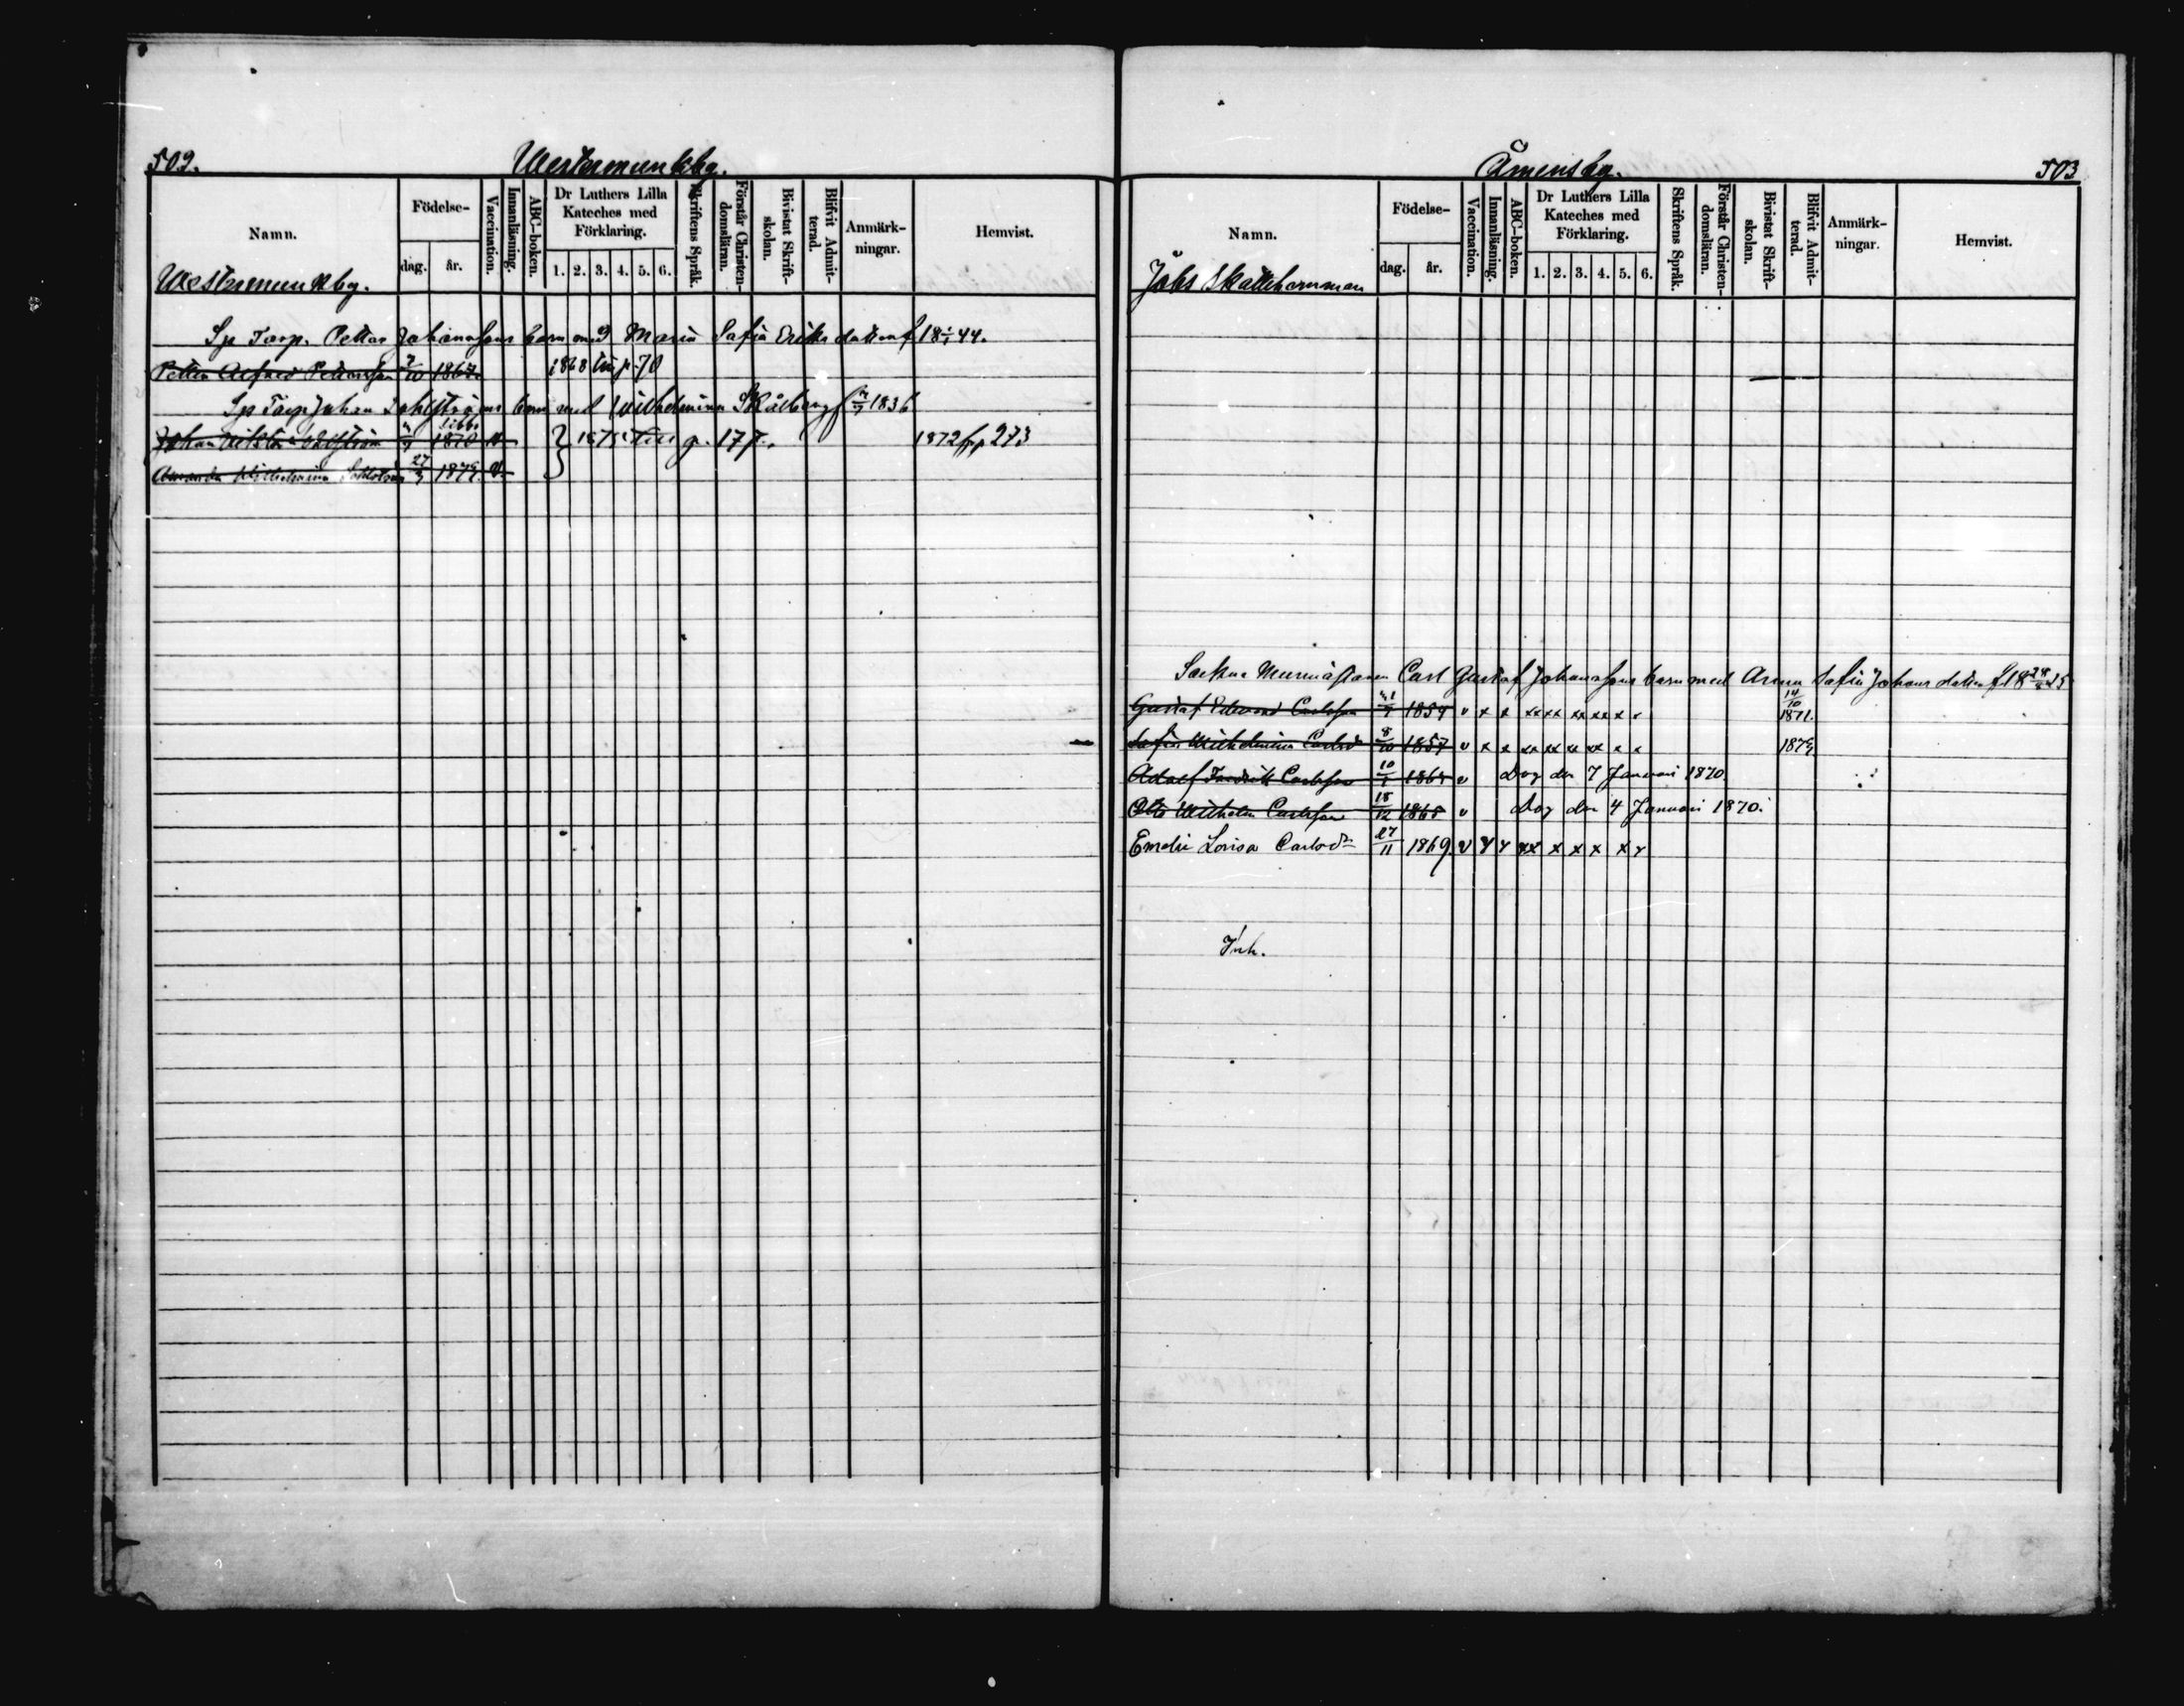 502.
Westermunkby.
Namn.
Födelse-
dag.
år.
Vaccination.
Innanläsning.
ABC-boken.
Dr Luthers Lilla
Kateches med
Förklaring.
1. 2. 3. 4. 5. 6.
Skriftens Språk.
Förstår Christen-
domsläran.
Bivistat Skrift-
skolan.
Blifvit Admit-
terad.
Anmärk-
ningar.
Hemvist.
Westermunkby.
Sp Torp. Petter Johanssons barn med Maria Sofia Eriks dotter f 18 44.
Petter Alfred Pettersson 10 1867. 1868 p. 70
Sp Torp Johan barn med Wilhelmina 1836
Johan 1870 v 1875 till p. 177. 1872 fr p 273
Amanda Wilhelmina 27 187 v
503
Åmensby.
Namn.
Födelse-
dag.
år.
Vaccination.
Innanläsning.
ABC-boken.
Dr Luthers Lilla
Kateches med
Förklaring.
1. 2. 3. 4. 5. 6.
Skriftens Språk.
Förstår Christen-
domsläran.
Bivistat Skrift-
skolan.
Blifvit Admit-
terad.
Anmärk-
ningar.
Hemvist.
Jobs Skattehemman
Carl Gustaf Johanssons barn med Anna Sofia Johans dotter f 18 25
Gustaf Edvard Carlsson 1854 v x x xx xx xx x x x 14/10 1871.
Sofia Wilhelmina Carlsd 8/10 1857 v x x xx xx xx xx x x 187
Adolf Fredrik Carlsson 10 186 v Dog den 7 Januari 1870.
Otto Wilhelm Carlsson 18/12 1865 v Dog den 4 Januari 1870.
Emelie Lovisa Carlsdr 27/11 1869 v x x xx x x x x x
Inh.